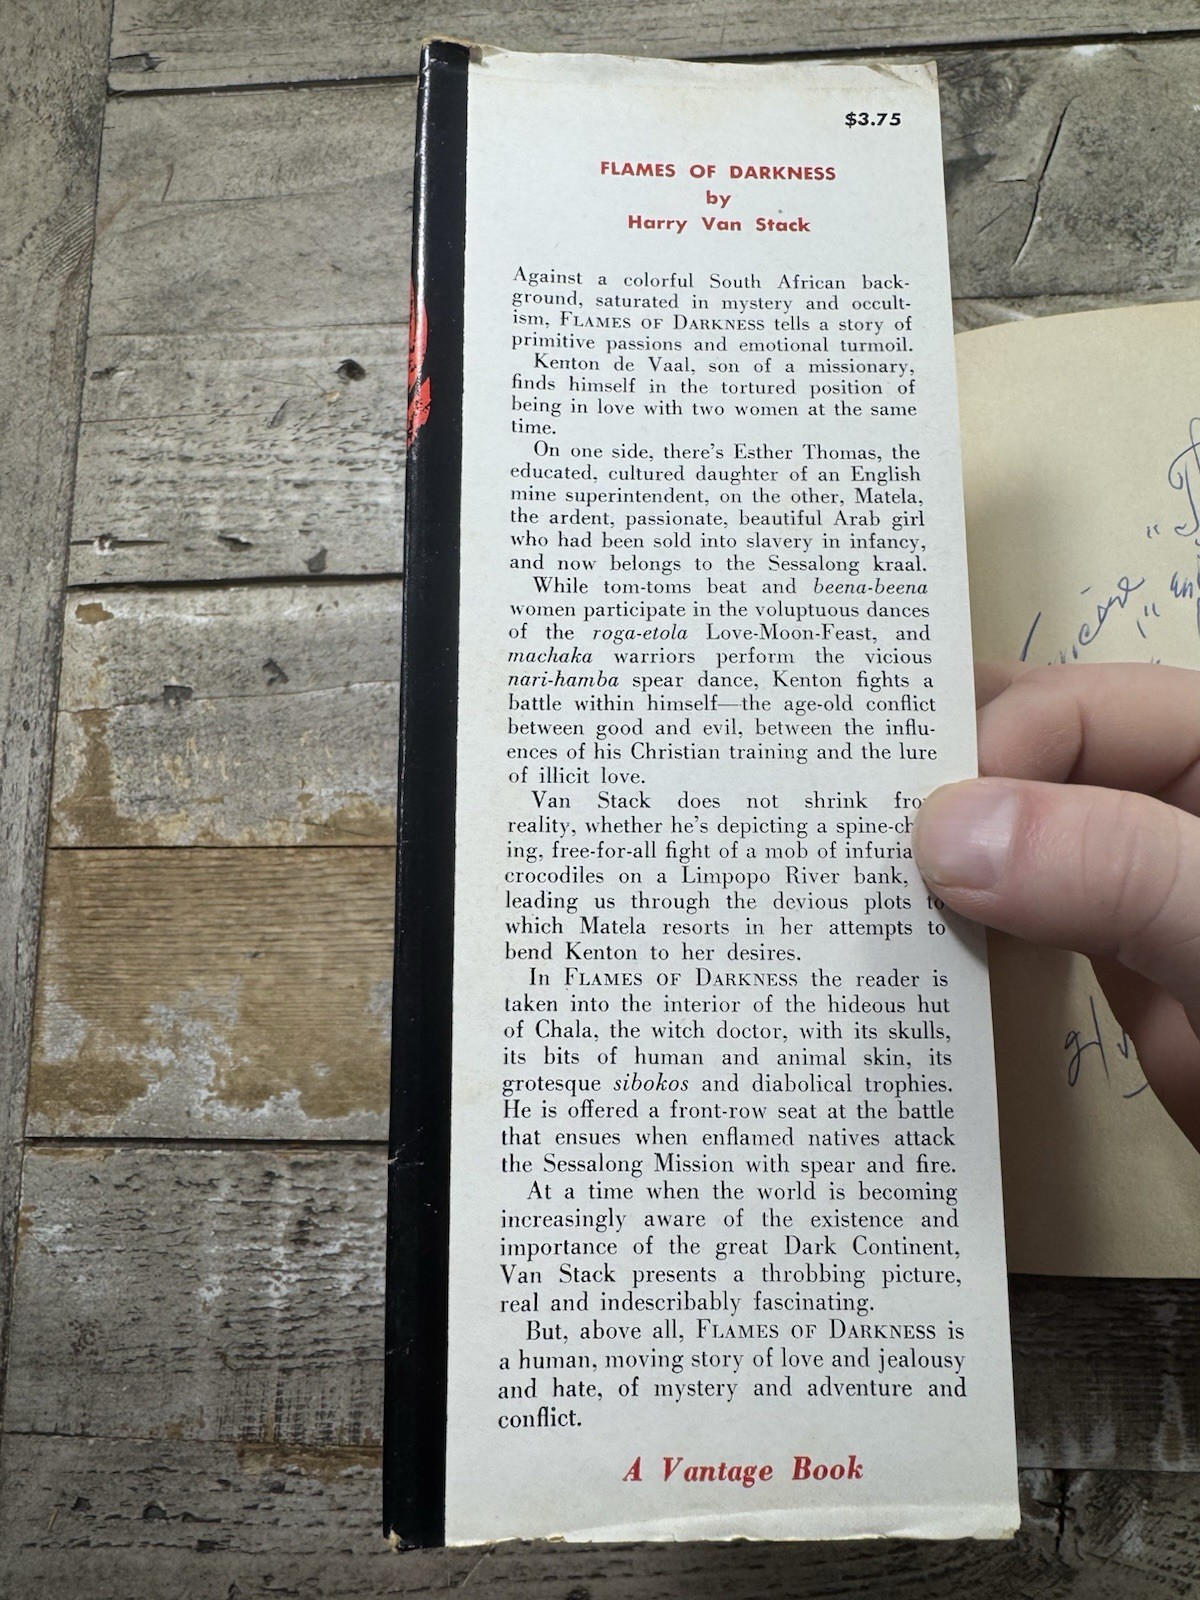 $3.75
FLAMES OF DARKNESS
by
Harry Van Stack
Against a colorful South African back-
ground, saturated in mystery and occult-
ism, FLAMES OF DARKNESS tells a story of
primitive passions and emotional turmoil.
Kenton de Vaal, son of a missionary,
finds himself in the tortured position of
being in love with two women at the same
time.
On one side, there's Esther Thomas, the
educated, cultured daughter of an English
mine superintendent, on the other, Matela,
the ardent, passionate, beautiful Arab girl
who had been sold into slavery in infancy,
and now belongs to the Sessalong kraal.
While tom-toms beat and beena-beena
women participate in the voluptuous dances
of the roga-etola Love-Moon-Feast, and
machaka warriors perform the vicious
nari-hamba spear dance, Kenton fights a
battle within himself—the age-old conflict
between good and evil, between the influ-
ences of his Christian training and the lure
of illicit love.
Van Stack does not shrink
reality, whether he's depicting a
ing, free-for-all fight of a mob of
crocodiles on a Limpopo River bank,
leading us through the devious plots to
which Matela resorts in her attempts to
bend Kenton to her desires.
In FLAMES OF DARKNESS the reader is
taken into the interior of the hideous hut
of Chala, the witch doctor, with its skulls,
its bits of human and animal skin, its
grotesque sibokos and diabolical trophies.
He is offered a front-row seat at the battle
that ensues when enflamed natives attack
the Sessalong Mission with spear and fire.
At a time when the world is becoming
increasingly aware of the existence and
importance of the great Dark Continent,
Van Stack presents a throbbing picture,
real and indescribably fascinating.
But, above all, FLAMES OF DARKNESS is
a human, moving story of love and jealousy
and hate, of mystery and adventure and
conflict.
A Vantage Book